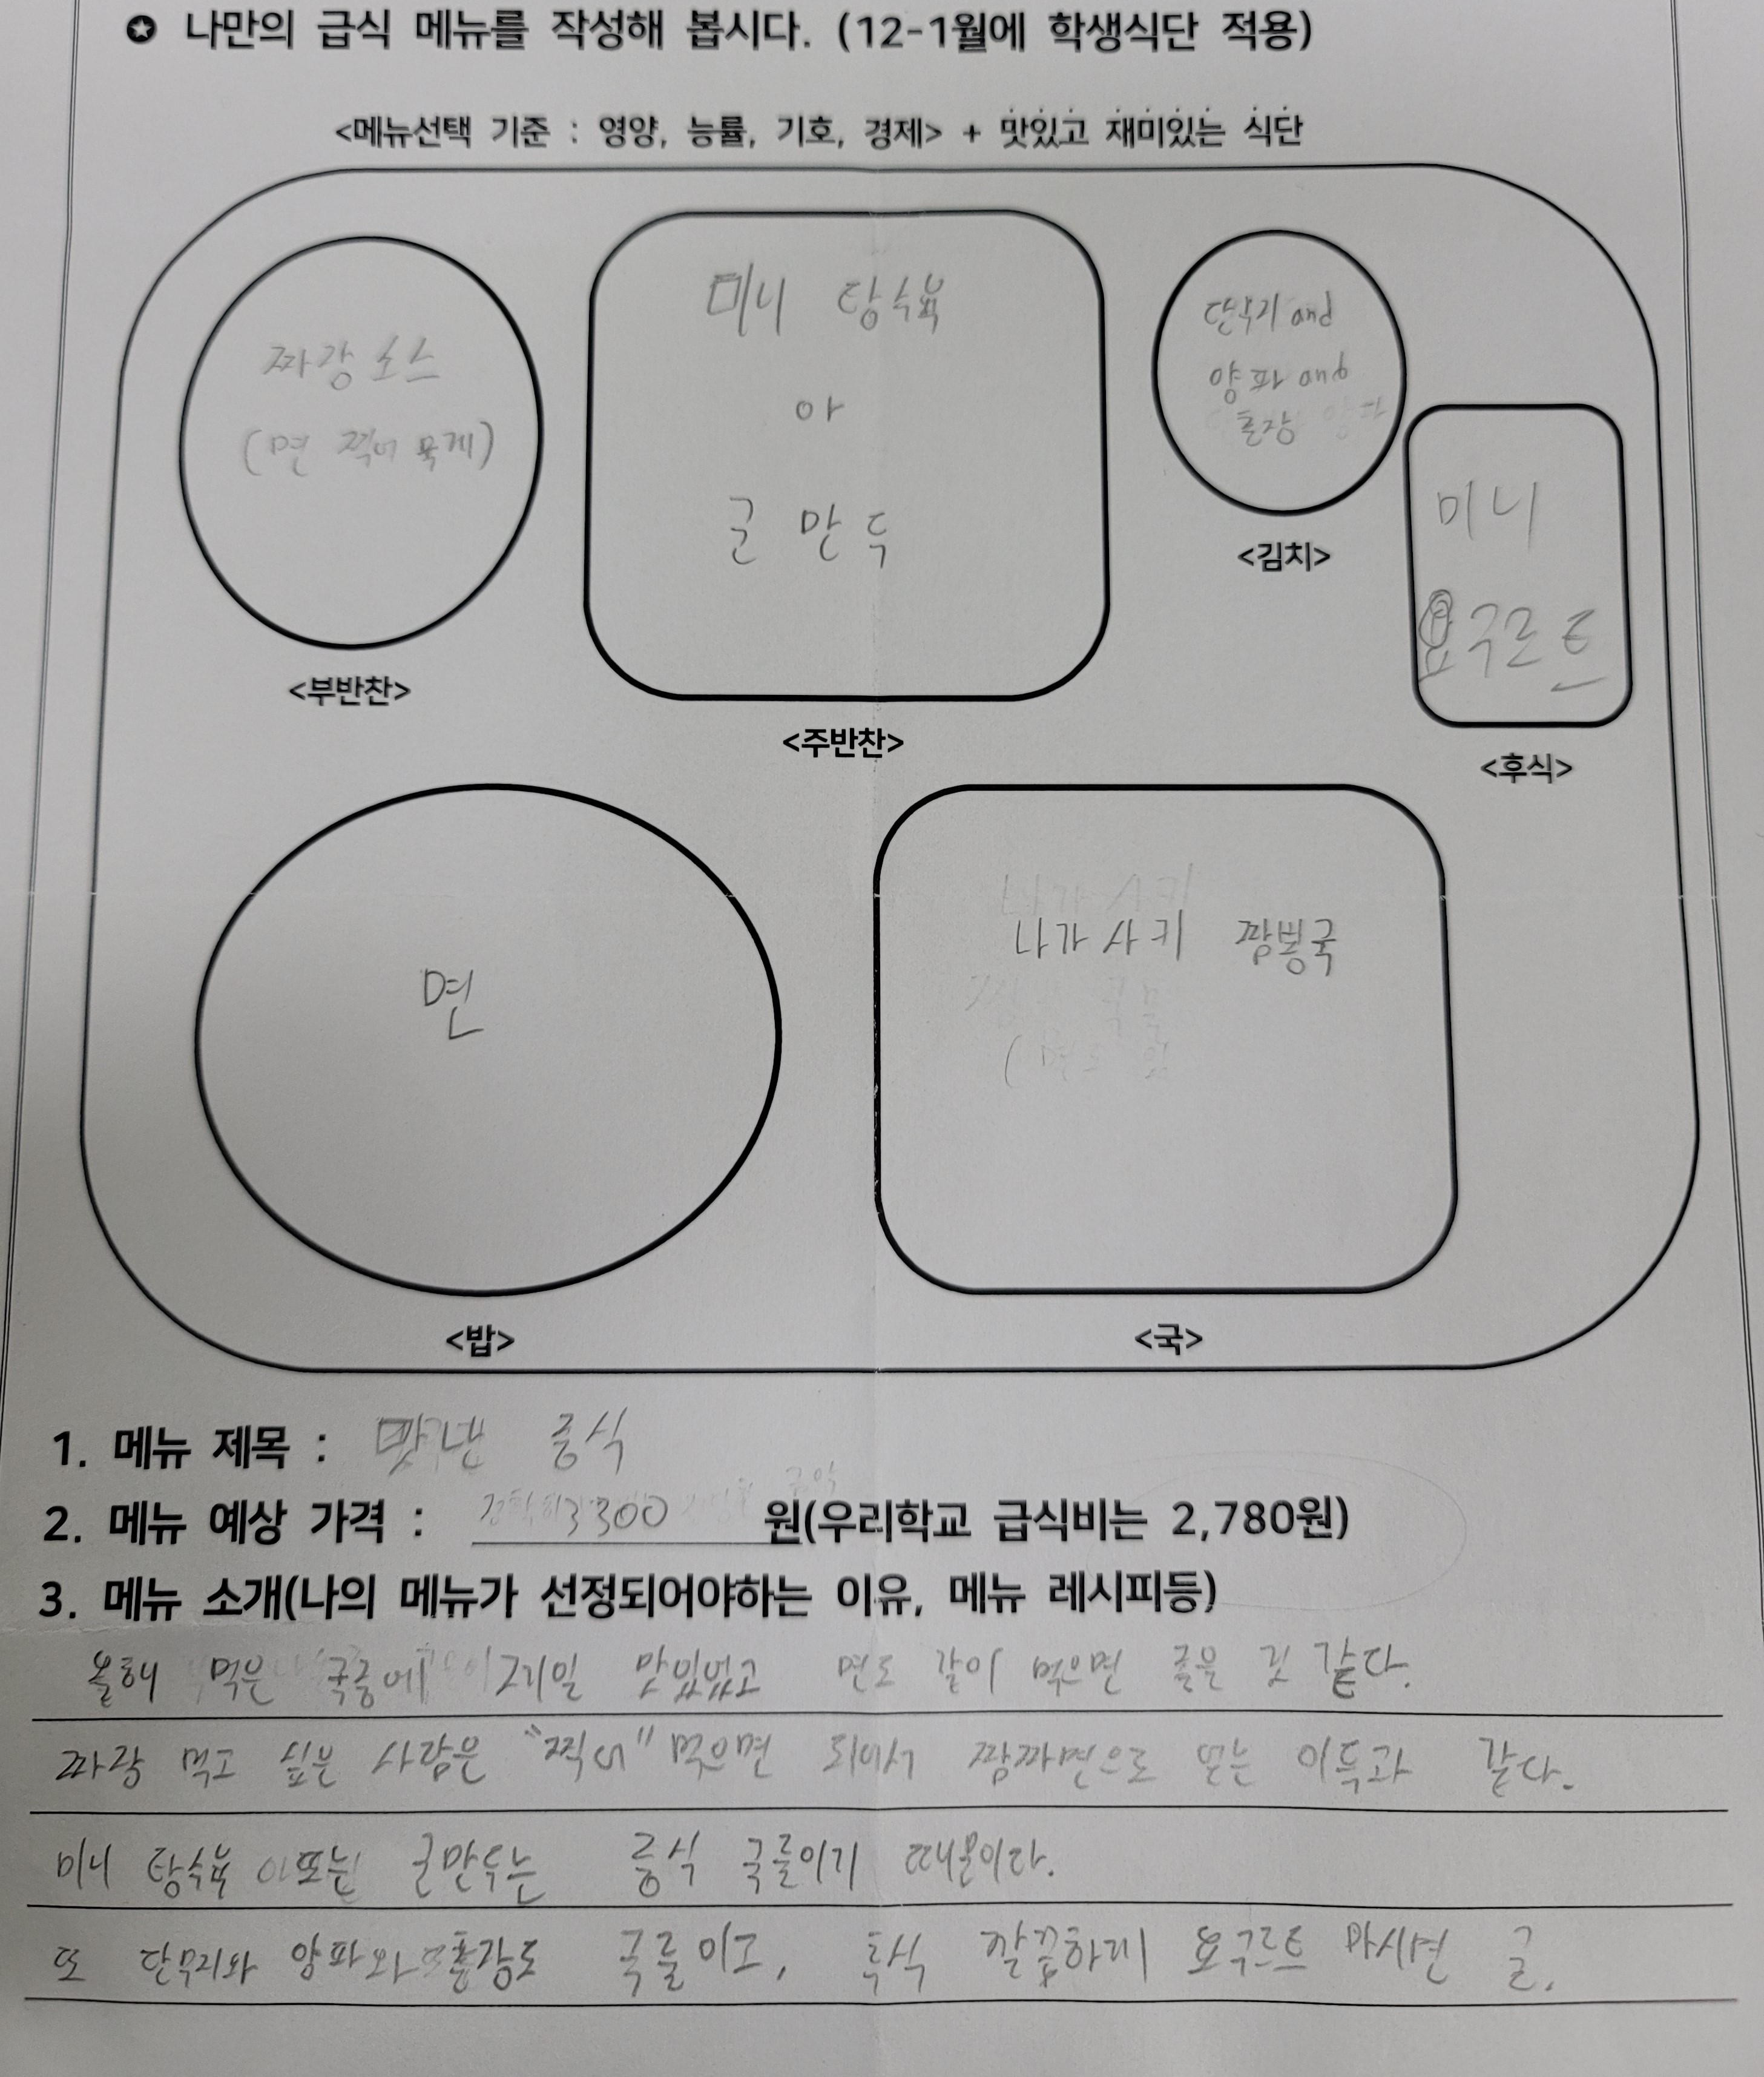 ✪ 나만의 급식 메뉴를 작성해 봅시다. (12-1월에 학생식단 적용)
<메뉴선택 기준 : 영양, 능률, 기호, 경제> + 맛있고 재미있는 식단
짜장소스
(면 찍어 묵게)
<부반찬>
미니 탕수육
or
군만두
<주반찬>
단무지 and
양파 and
춘장
<김치>
미니
요구르트
<후식>
면
<밥>
나가사키 짬뽕국
<국>
1. 메뉴 제목 : 중식
2. 메뉴 예상 가격 : 3300 원(우리학교 급식비는 2,780원)
3. 메뉴 소개(나의 메뉴가 선정되어야하는 이유, 메뉴 레시피등)
올해 먹은 국중에 제일 맛있었고 면도 같이 먹으면 좋을 것 같다.
짜장 먹고 싶은 사람은 "찍어" 먹으면 되어서 짬짜면으로 얻는 이득과 같다.
미니 탕수육 또는 군만두는 중식 국룰이기 때문이다.
또 단무지와 양파와 춘장도 국룰이고, 후식 깔끔하게 요구르트 마시면 굳.